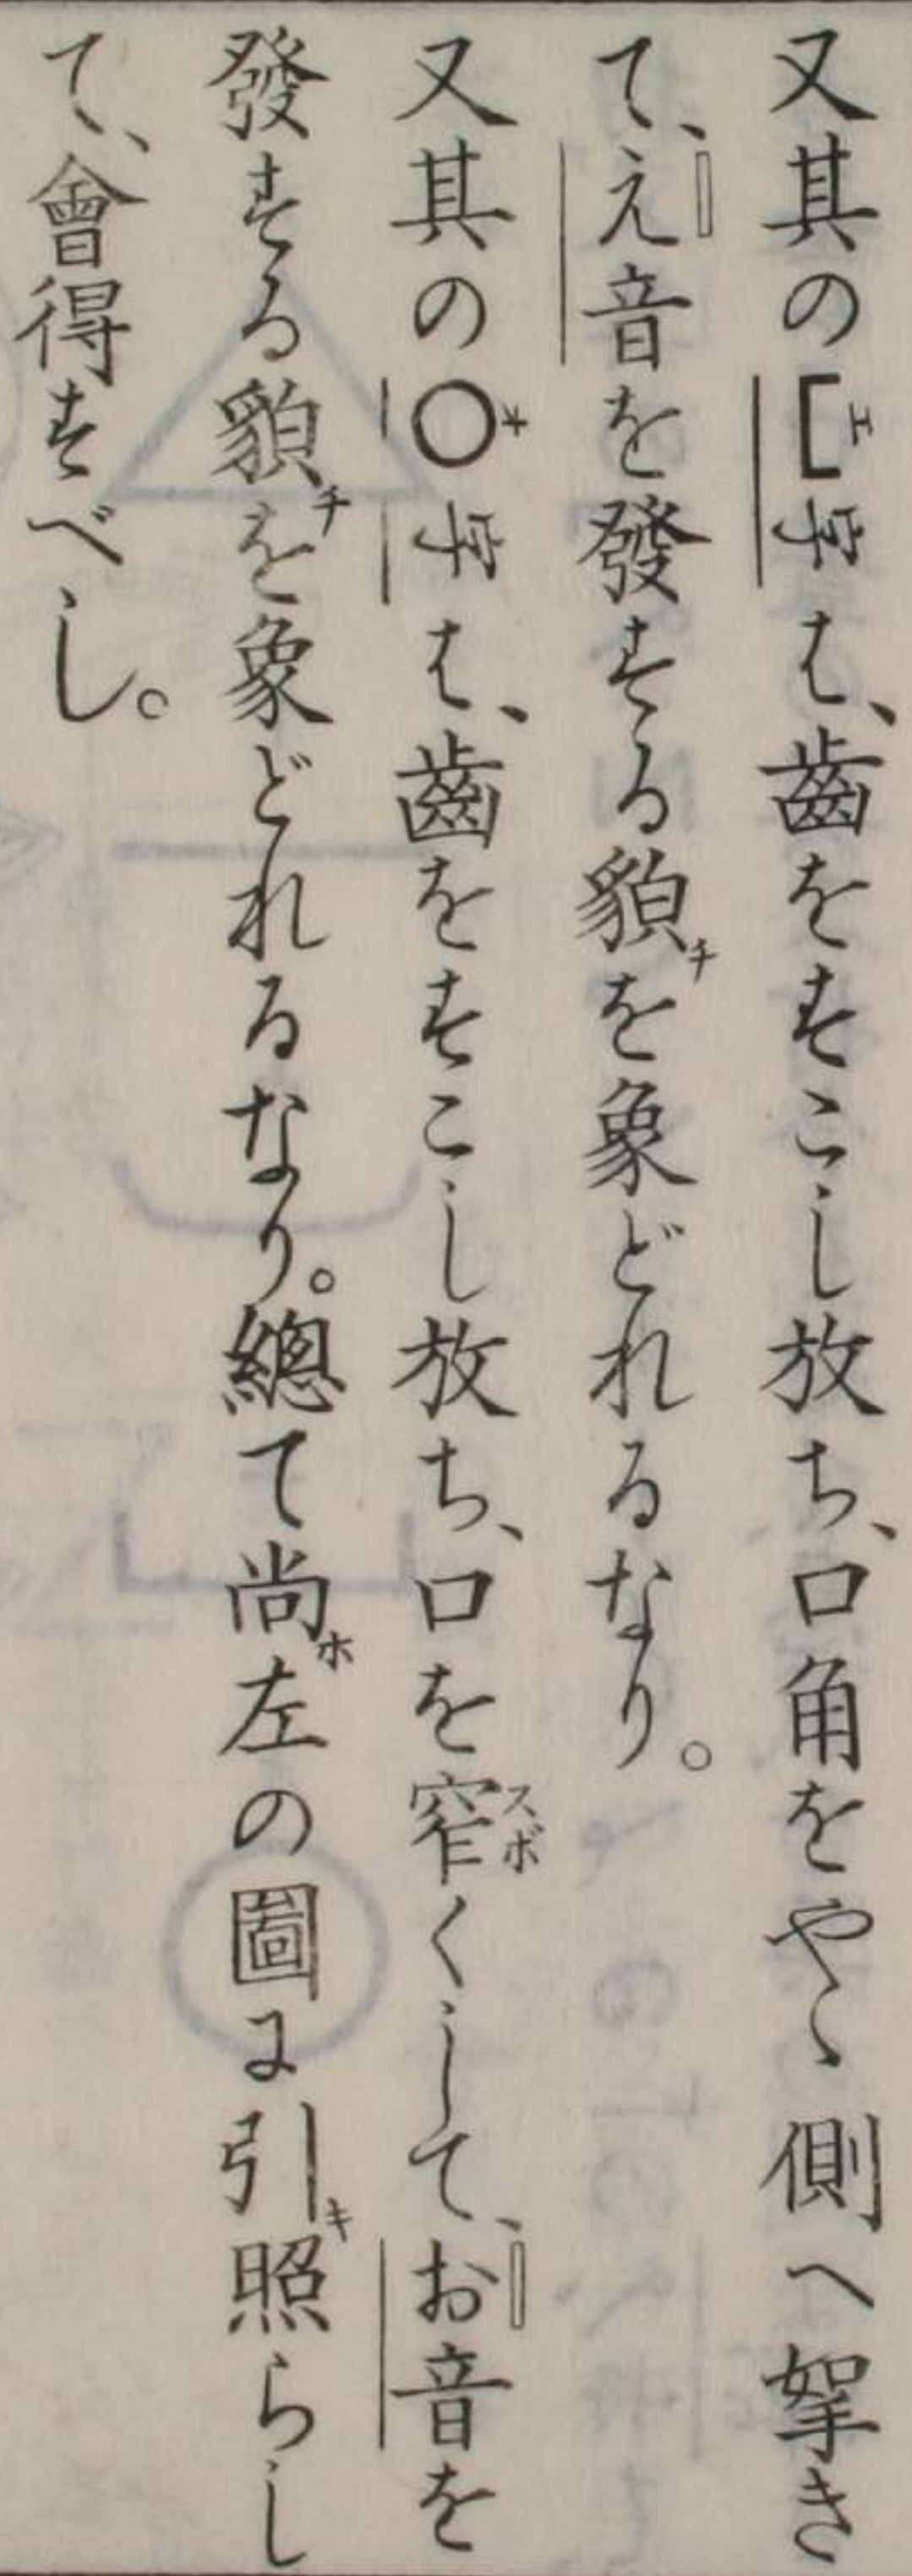 又其の［エは、齒をすこし放ち、口角をやゝ側へ挐き
て、え音を發する貌チを象どれるなり。
又其の〇オは、齒をすこし放ち、口を窄スボくして、お音を
發する貌チを象どれるなり。總て尚ホ左の圖に引キ照らし
て、會得すべし。